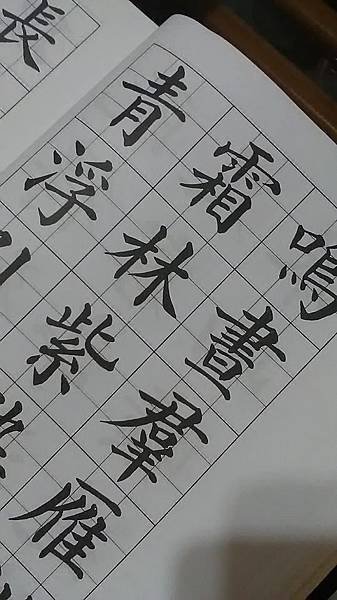 鳴晝群雁
霜林紫
青浮
長